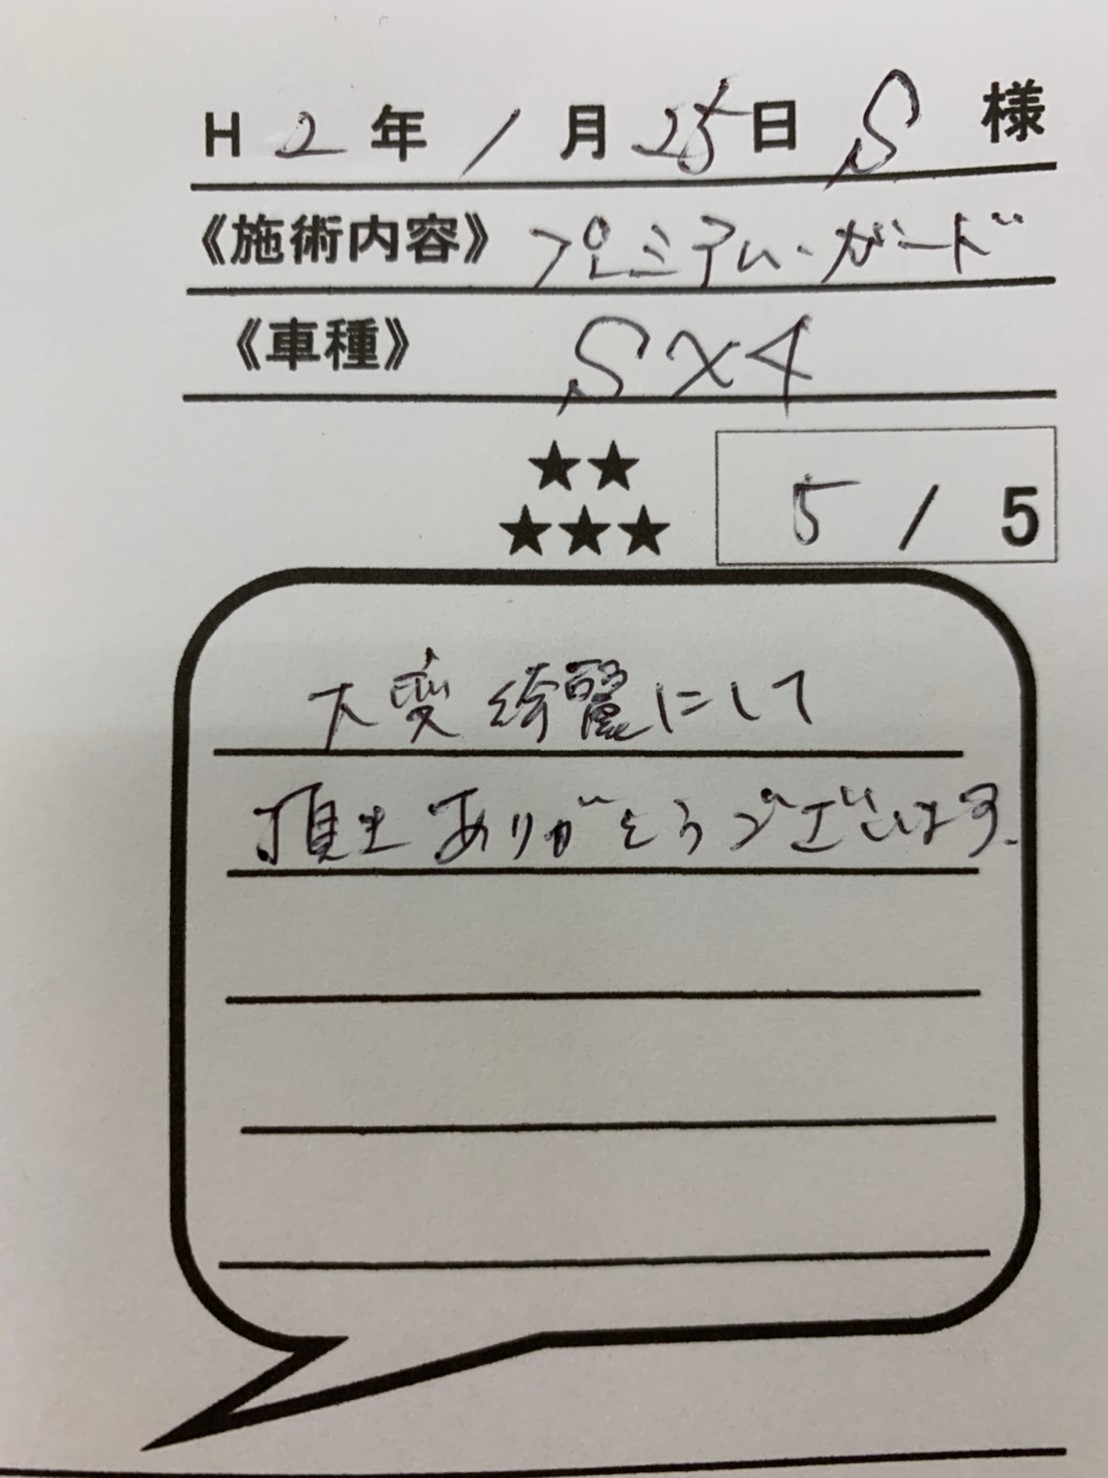 H 2 年 1 月 25 日 S 様
《施術内容》 プレミアム・ガード
《車種》 SX4
★★
★★★ 5 / 5
大変綺麗にして
頂きありがとうございます.